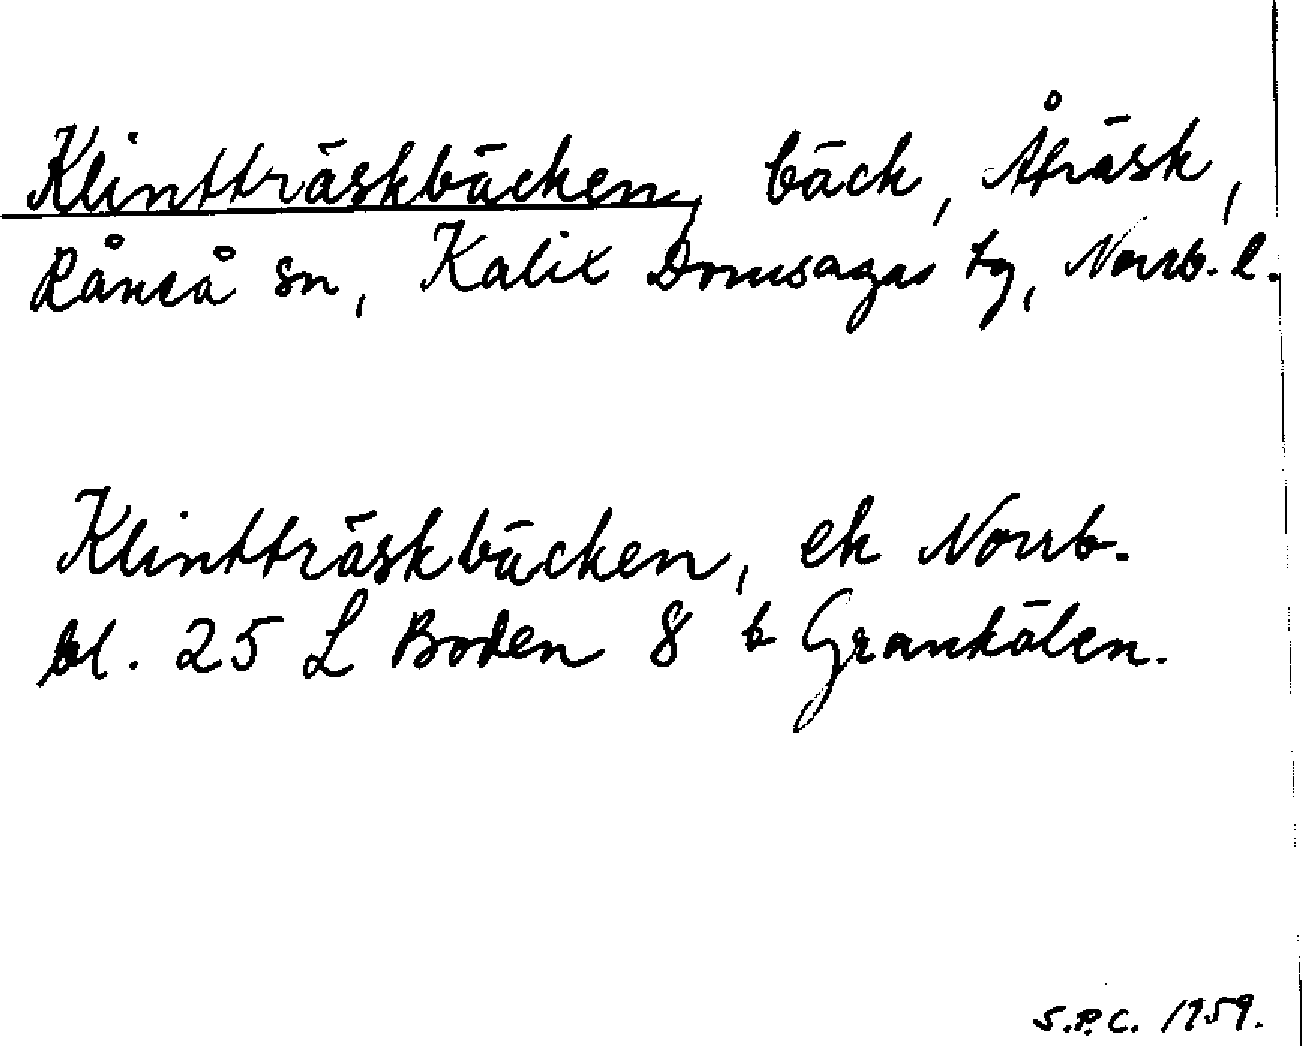 Klintträskbäcken, bäck, Åträsk,
Råneå sn, Kalix Domsagas tg, Norrb. l.
Klintträskbäcken, ek Norrb.
bl. 25 L Boden 8 b Grankölen.
S.P.C. 1959.